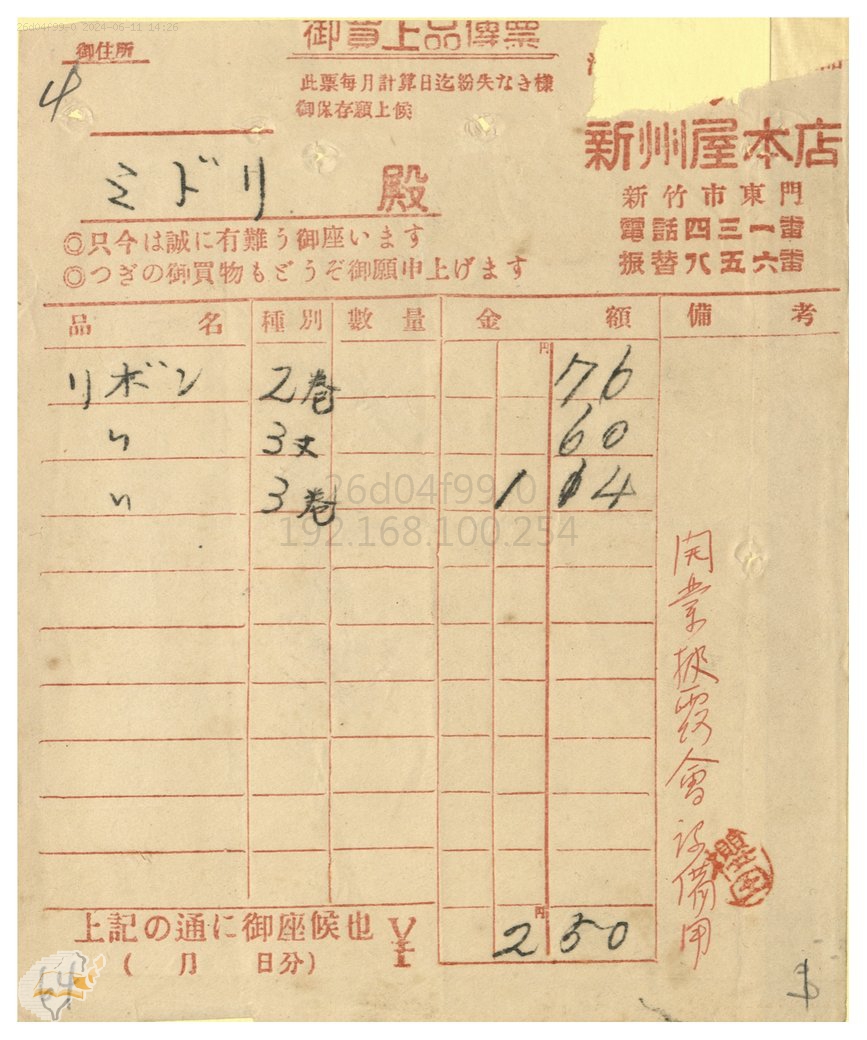 26d04f99/0 2024-06-11 14:26
御住所
御買上品傳票
4
此票每月計算日迄紛失なき樣
御保存願上候
新州屋本店
新竹市東門
電話四三一番
振替八五六番
ミドリ 殿
◎只今は誠に有難う御座います
◎つぎの御買物もどうぞ御願申上げます
品名 種別 數量 金額 備考
円
リボン 2巻 76
〃 3丈 60
〃 3巻 1 14
26d04f99/0
192.168.100.254
開業披露會設備用
円
上記の通に御座候也 ¥ 2 50
(月 日分)
64